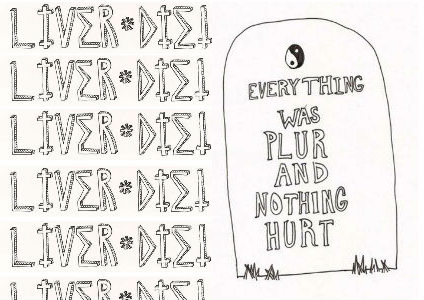 LIVER * DIET
LIVER * DIET
LIVER * DIET
LIVER * DIET
LIVER * DIET
LIVER * DIET
EVERYTHING
WAS
PLUR
AND
NOTHING
HURT